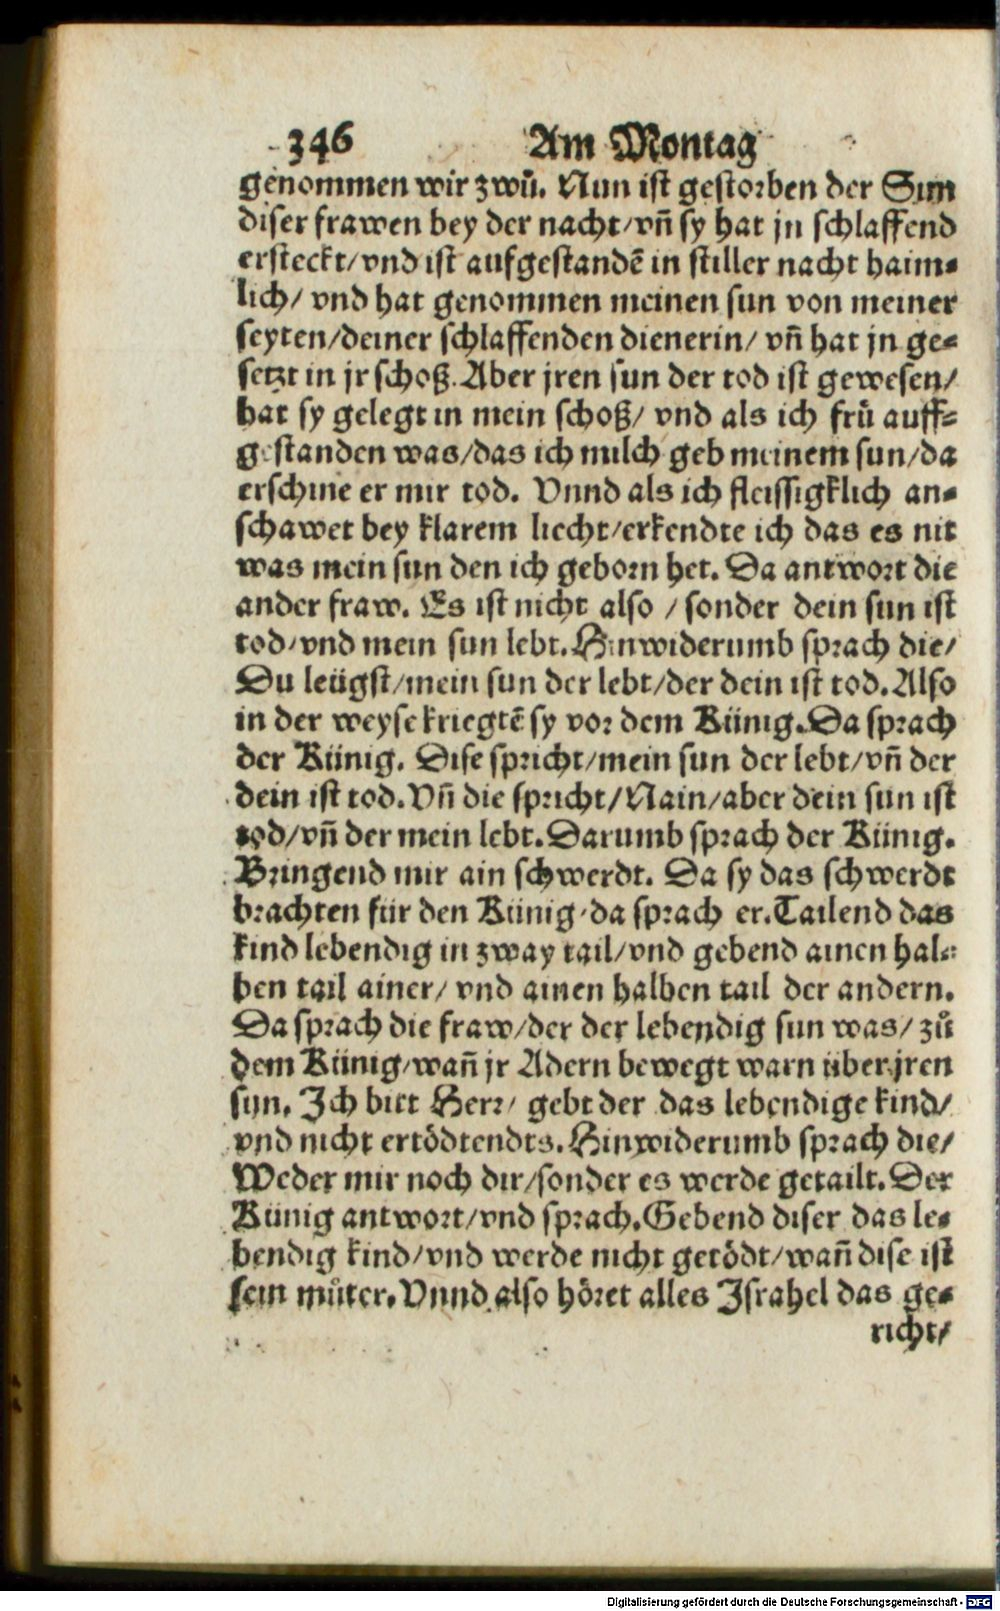 346 Am Montag
genommen wir zwů. Nun ist gestorben der Sun
diser frawen bey der nacht/vñ sy hat jn schlaffend
ersteckt/vnd ist aufgestandẽ in stiller nacht haim⸗
lich/ vnd hat genommen meinen sun von meiner
seyten/deiner schlaffenden dienerin/ vñ hat jn ge⸗
setzt in jr schoß. Aber jren sun der tod ist gewesen/
hat sy gelegt in mein schoß/ vnd als ich frů auff⸗
gestanden was/das ich milch geb meinem sun/da
erschine er mir tod. Vnnd als ich fleissigklich an⸗
schawet bey klarem liecht/erkendte ich das es nit
was mein sun den ich geborn het. Da antwort die
ander fraw. Es ist nicht also / sonder dein sun ist
tod/vnd mein sun lebt. Hinwiderumb sprach die/
Du leügst/mein sun der lebt/der dein ist tod. Also
in der weyse kriegtẽ sy vor dem Künig. Da sprach
der Künig. Dise spricht/mein sun der lebt/vñ der
dein ist tod. Vñ die spricht/Nain/aber dein sun ist
tod/vñ der mein lebt. Darumb sprach der Künig.
Bringend mir ain schwerdt. Da sy das schwerdt
brachten für den Künig/da sprach er. Tailend das
kind lebendig in zway tail/vnd gebend ainen hal⸗
ben tail ainer/ vnd ainen halben tail der andern.
Da sprach die fraw/der der lebendig sun was/ zů
dem Künig/wañ jr Adern bewegt warn über jren
sun. Ich bitt Herr/ gebt der das lebendige kind/
vnd nicht ertödtendts. Hinwiderumb sprach die/
Weder mir noch dir/sonder es werde getailt. Der
Künig antwort/vnd sprach. Gebend diser das le⸗
bendig kind/vnd werde nicht getödt/wañ dise ist
sein můter. Vnnd also höret alles Israhel das ge⸗
richt/
Digitalisierung gefördert durch die Deutsche Forschungsgemeinschaft - DFG